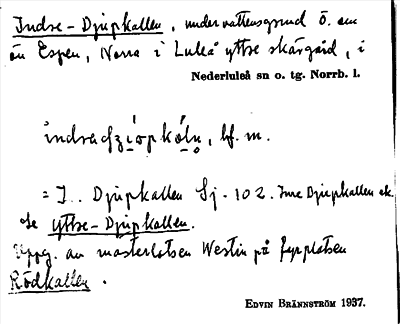 Indre-Djupkallen, undervattensgrund ö. om
ön Espen, Norra i Luleå yttre skärgård, i
Nederluleå sn o. tg. Norrb. l.
bf. m.
= I.. Djupkallen Sj. 102. Inre Djupkallen ek.
Se yttre-Djupkallen.
Uppg. av masterlotsen Westin på fyrplatsen
Rödkallen.
EDVIN BRÄNNSTRÖM 1937.